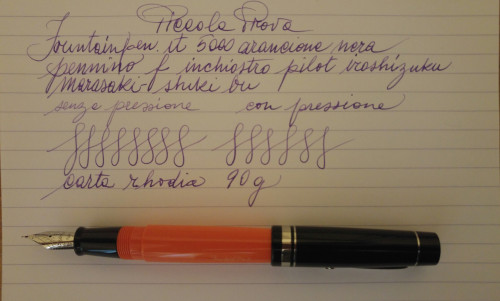 Piccola Prova
Fountainpen.it 5000 arancione nera
pennino f inchiostro pilot iroshizuku
Murasaki-shiki bu
senza pressione con pressione
carta rhodia 90 g